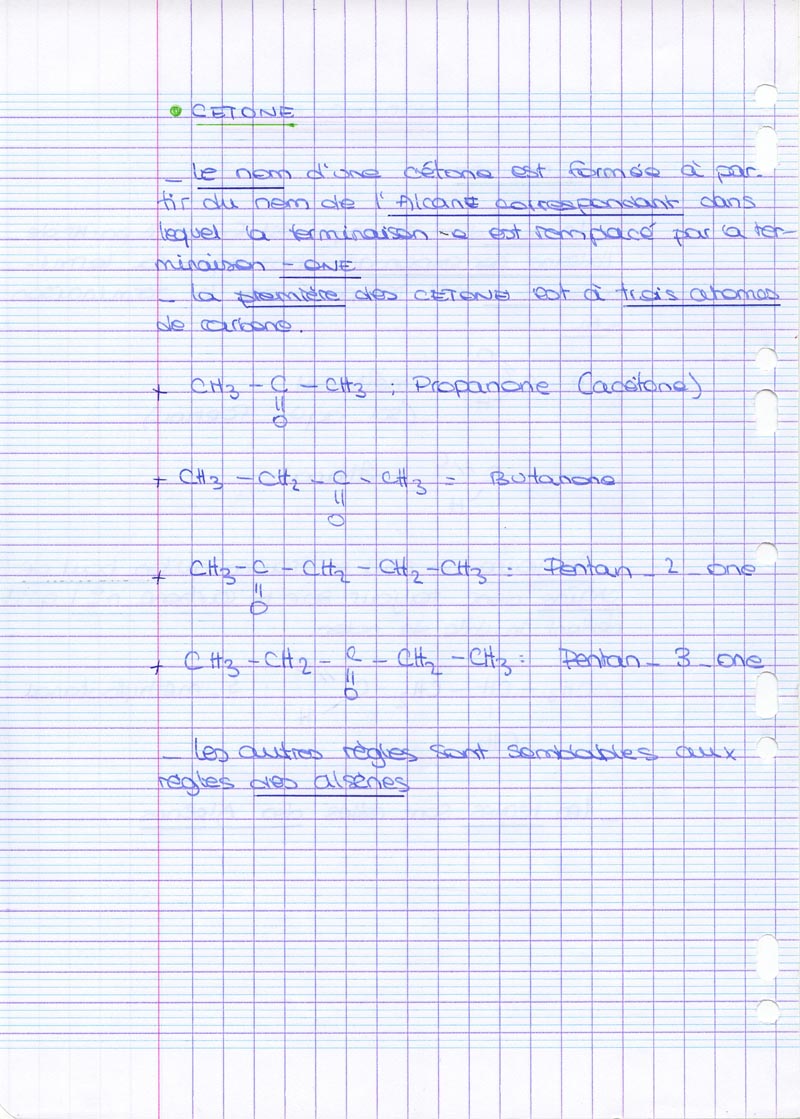 CETONE
_ Le nom d'une cétone est formée à par-
tir du nom de l'Alcane correspondant dans
lequel la terminaison -e est remplacé par la ter-
minaison - ONE
_ la première des CETONE est à trois atomes
de carbone.
+ CH3 - C - CH3 : Propanone (acétone)
||
O
+ CH3 - CH2 - C - CH3 = Butanone
||
O
+ CH3 - C - CH2 - CH2 - CH3 : Pentan _ 2 _ one
||
O
+ CH3 - CH2 - C - CH2 - CH3 : Pentan _ 3 _ one
||
O
_ Les autres règles sont semblables aux
règles des alsènes